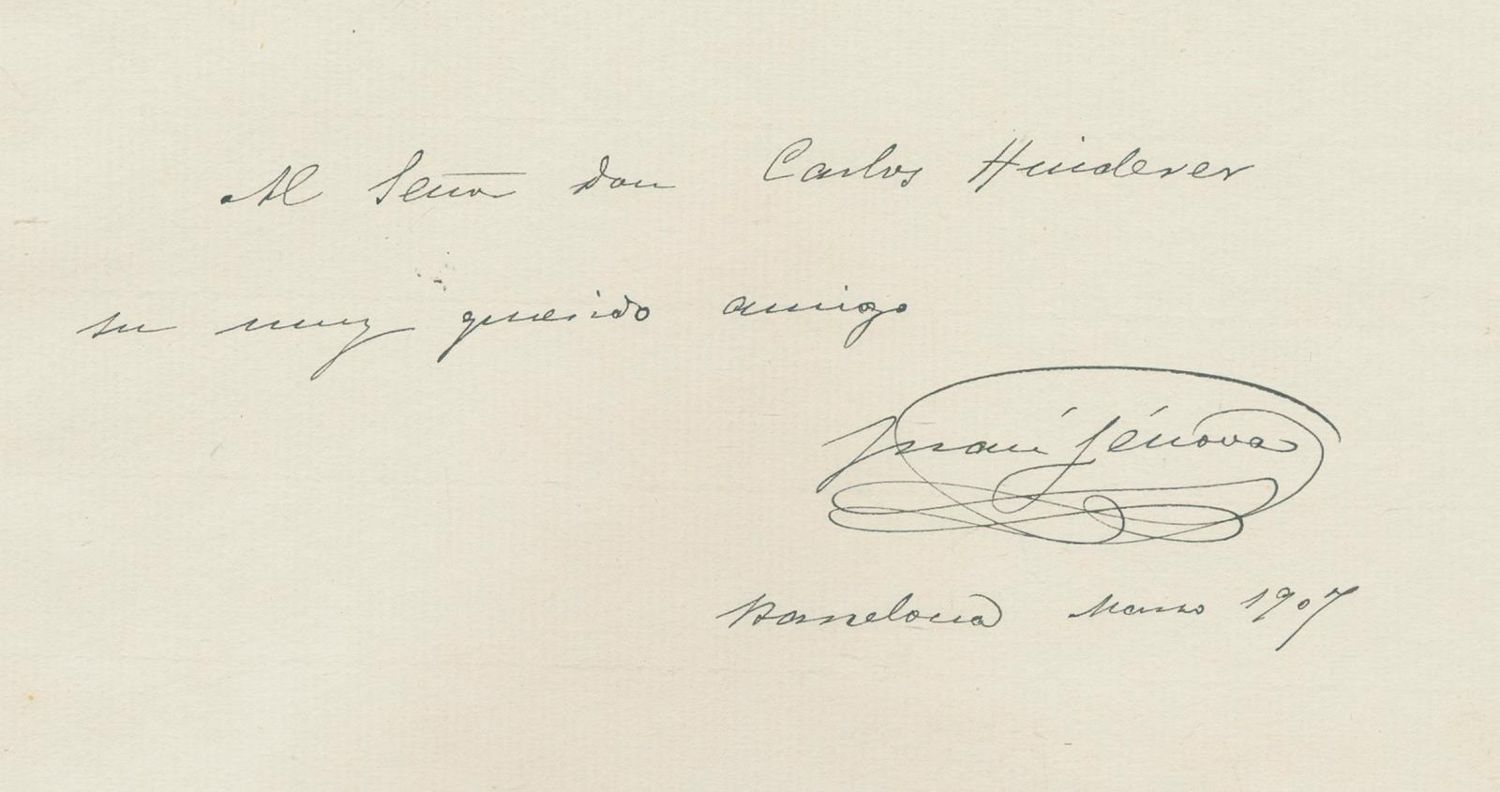 Al Señor Don Carlos Hinderer
su muy querido amigo
Juan Génova
Barcelona Marzo 1907